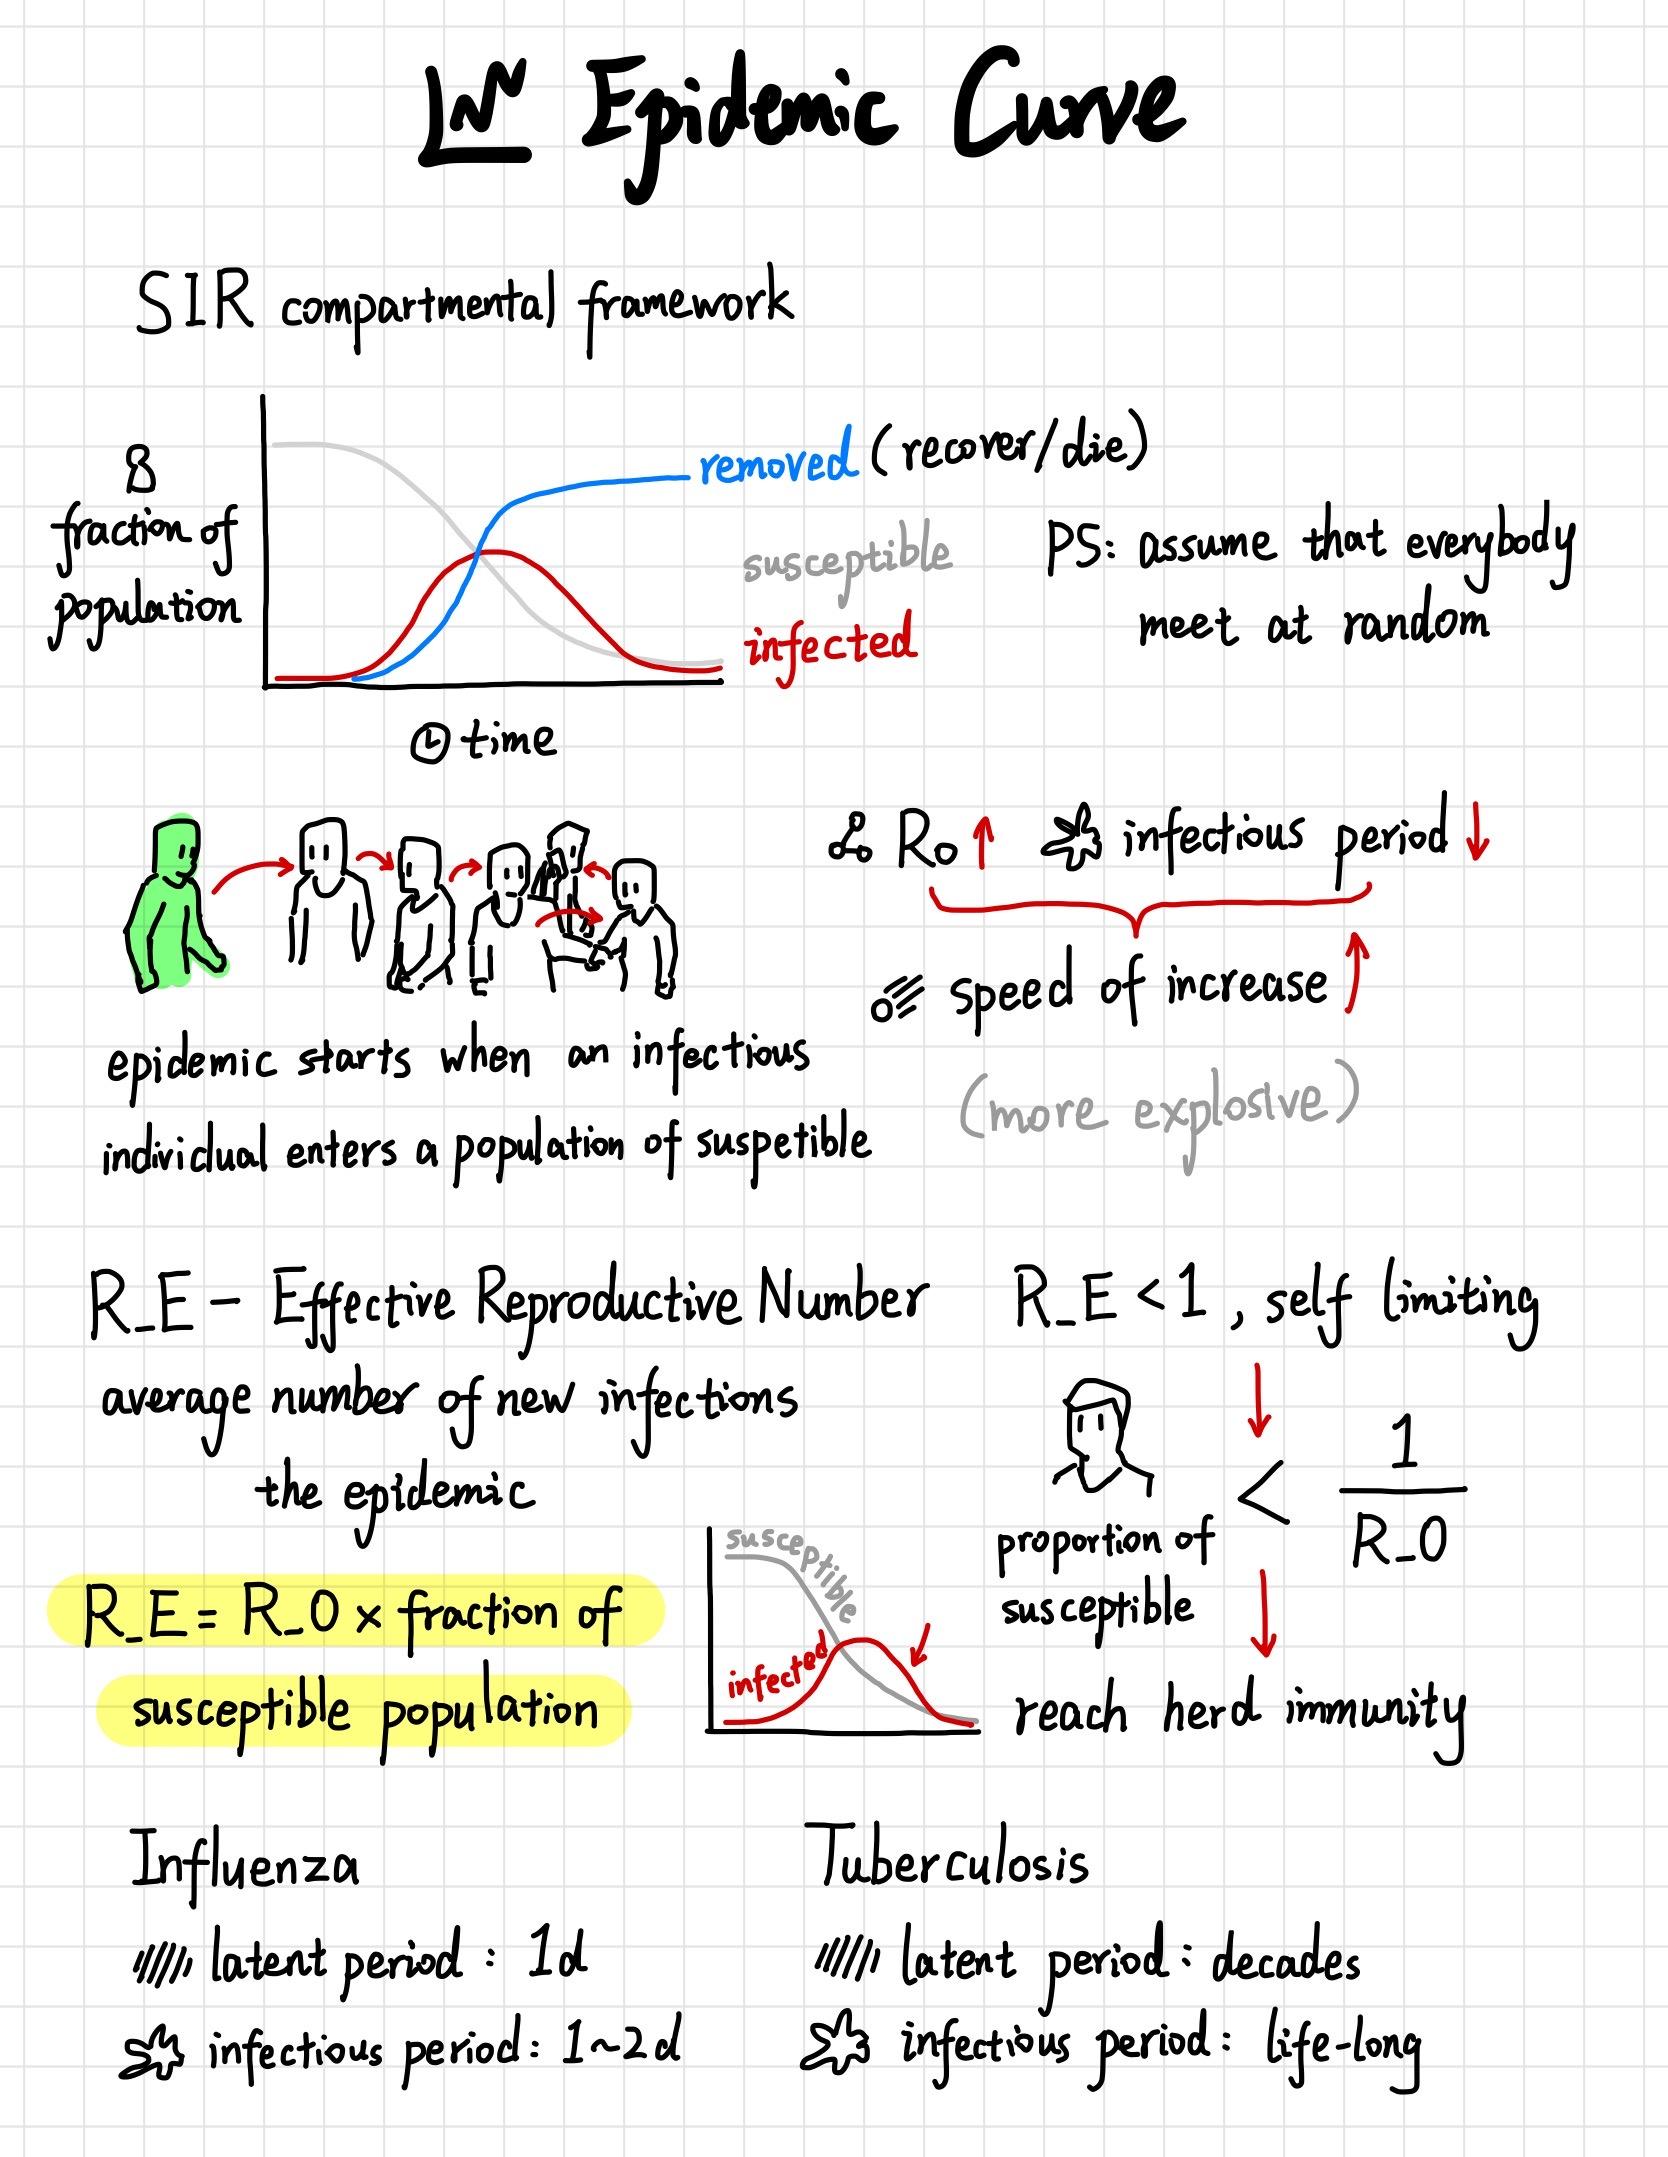 Epidemic Curve
SIR compartmental framework
removed (recover/die)
fraction of
population
susceptible
infected
PS: assume that everybody
meet at random
time
R₀ ↑ infectious period ↓
speed of increase ↑
(more explosive)
epidemic starts when an infectious
individual enters a population of suspetible
R_E - Effective Reproductive Number
average number of new infections
the epidemic
R_E = R_0 × fraction of
susceptible population
susceptible
infected
R_E < 1, self limiting
proportion of
susceptible
<
1
R_0
reach herd immunity
Influenza
latent period: 1d
infectious period: 1~2d
Tuberculosis
latent period: decades
infectious period: life-long